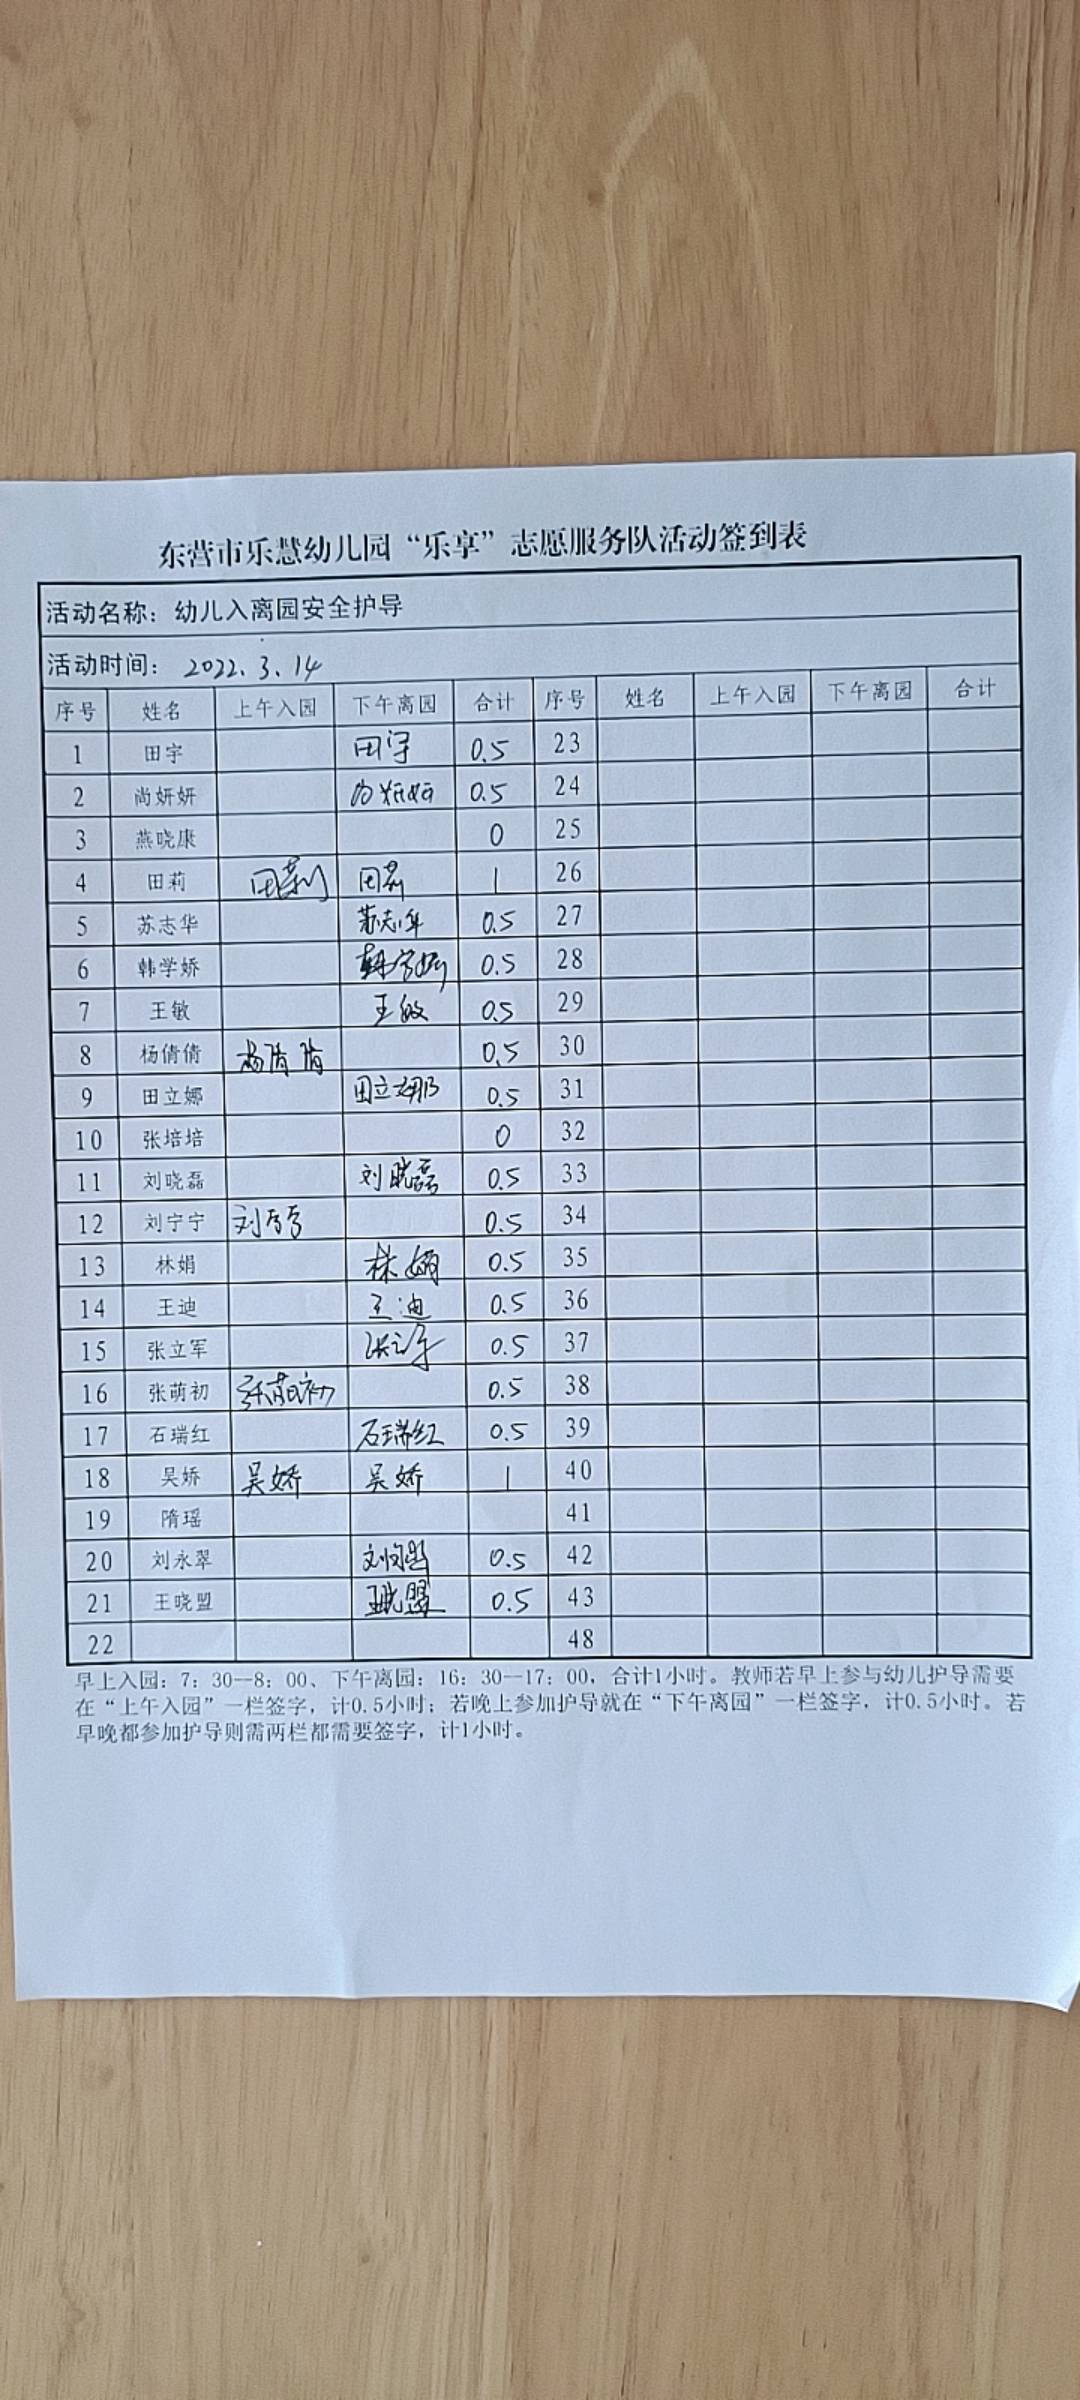 东营市乐慧幼儿园“乐享”志愿服务队活动签到表
活动名称：幼儿入离园安全护导
活动时间： 2022.3.14
序号 姓名 上午入园 下午离园 合计 序号 姓名 上午入园 下午离园 合计
1 田宇 田宇 0.5 23
2 尚妍妍 尚妍妍 0.5 24
3 燕晓康 0 25
4 田莉 田莉 田莉 1 26
5 苏志华 苏志华 0.5 27
6 韩学娇 韩学娇 0.5 28
7 王敏 王敏 0.5 29
8 杨倩倩 杨倩倩 0.5 30
9 田立娜 田立娜 0.5 31
10 张培培 0 32
11 刘晓磊 刘晓磊 0.5 33
12 刘宁宁 刘宁宁 0.5 34
13 林娟 林娟 0.5 35
14 王迪 王迪 0.5 36
15 张立军 张立军 0.5 37
16 张萌初 张萌初 0.5 38
17 石瑞红 石瑞红 0.5 39
18 吴娇 吴娇 吴娇 1 40
19 隋瑶 41
20 刘永翠 0.5 42
21 王晓盟 王晓盟 0.5 43
22 48
早上入园：7：30--8：00、下午离园：16：30--17：00，合计1小时。教师若早上参与幼儿护导需要
在“上午入园”一栏签字，计0.5小时；若晚上参加护导就在“下午离园”一栏签字，计0.5小时。若
早晚都参加护导则需两栏都需要签字，计1小时。